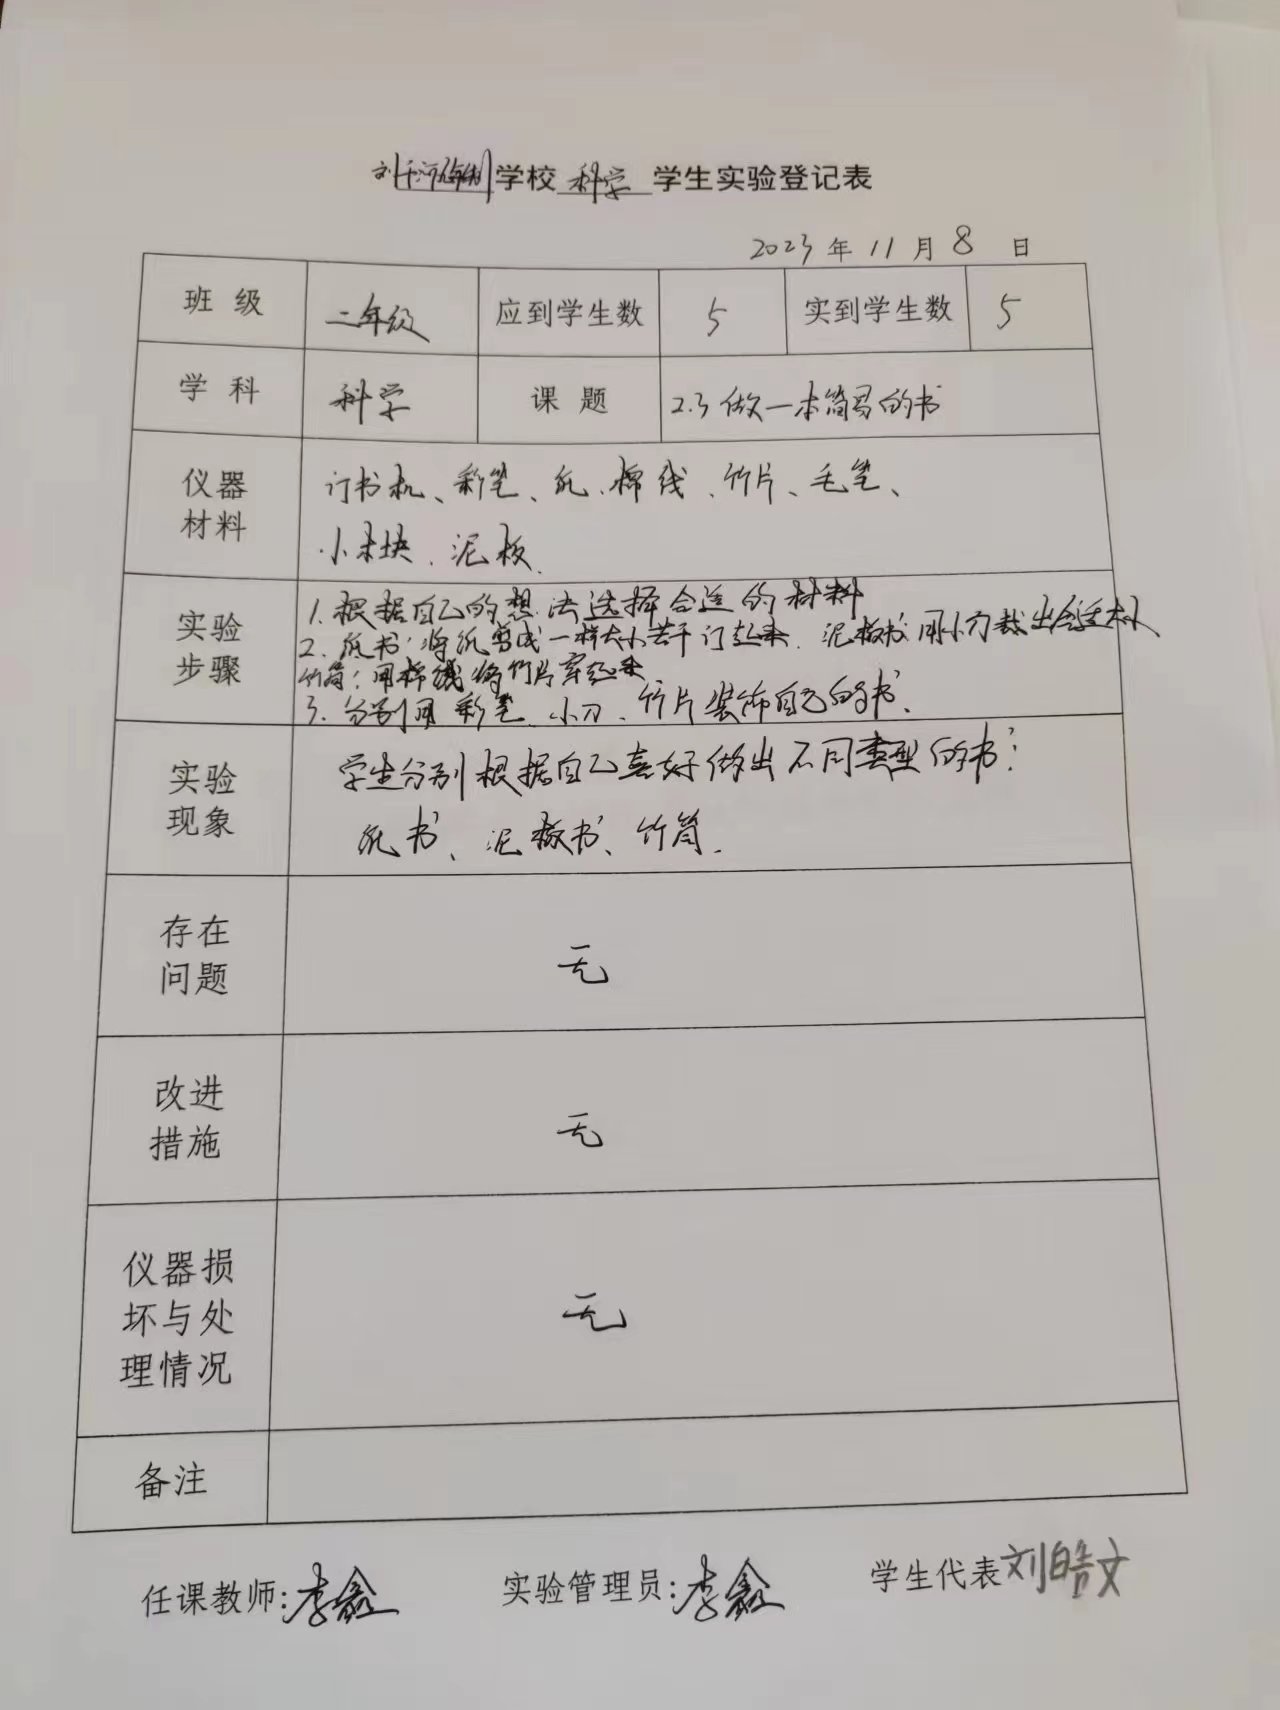 学校 科学 学生实验登记表
2023 年 11 月 8 日
班级 二年级 应到学生数 5 实到学生数 5
学科 科学 课题 2.3 做一本简易的书
仪器材料
订书机、彩笔、纸、棉线、竹片、毛笔、
小木块、泥板
实验步骤
1. 根据自己的想法选择合适的材料
2. 纸书:将纸剪成一样大小若干订起来. 泥板书:用小刀裁出合适大小
竹简:用棉线将竹片穿起来
3. 分别用彩笔、小刀、竹片装饰自己的书.
实验现象
学生分别根据自己喜好做出不同类型的书:
纸书、泥板书、竹简.
存在问题
无
改进措施
无
仪器损坏与处理情况
无
备注
任课教师:李鑫 实验管理员:李鑫 学生代表 刘皓文